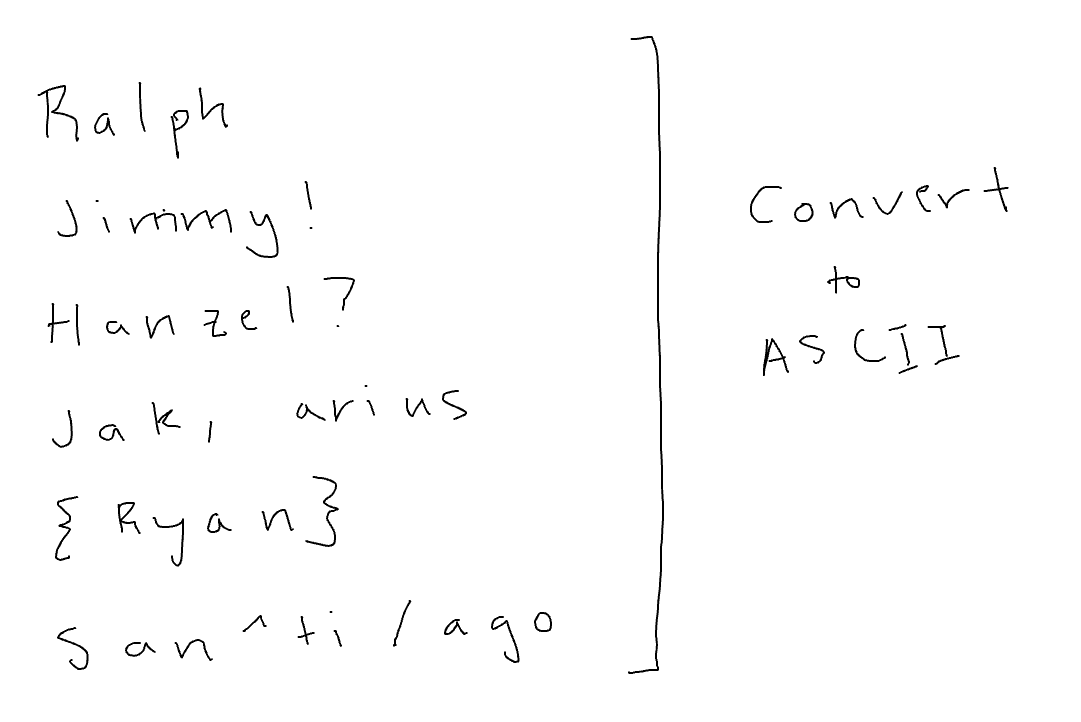 Ralph
Jimmy!
Hanzel?
Jak, arius
{Ryan}
San^ti/ago
Convert
to
ASCII